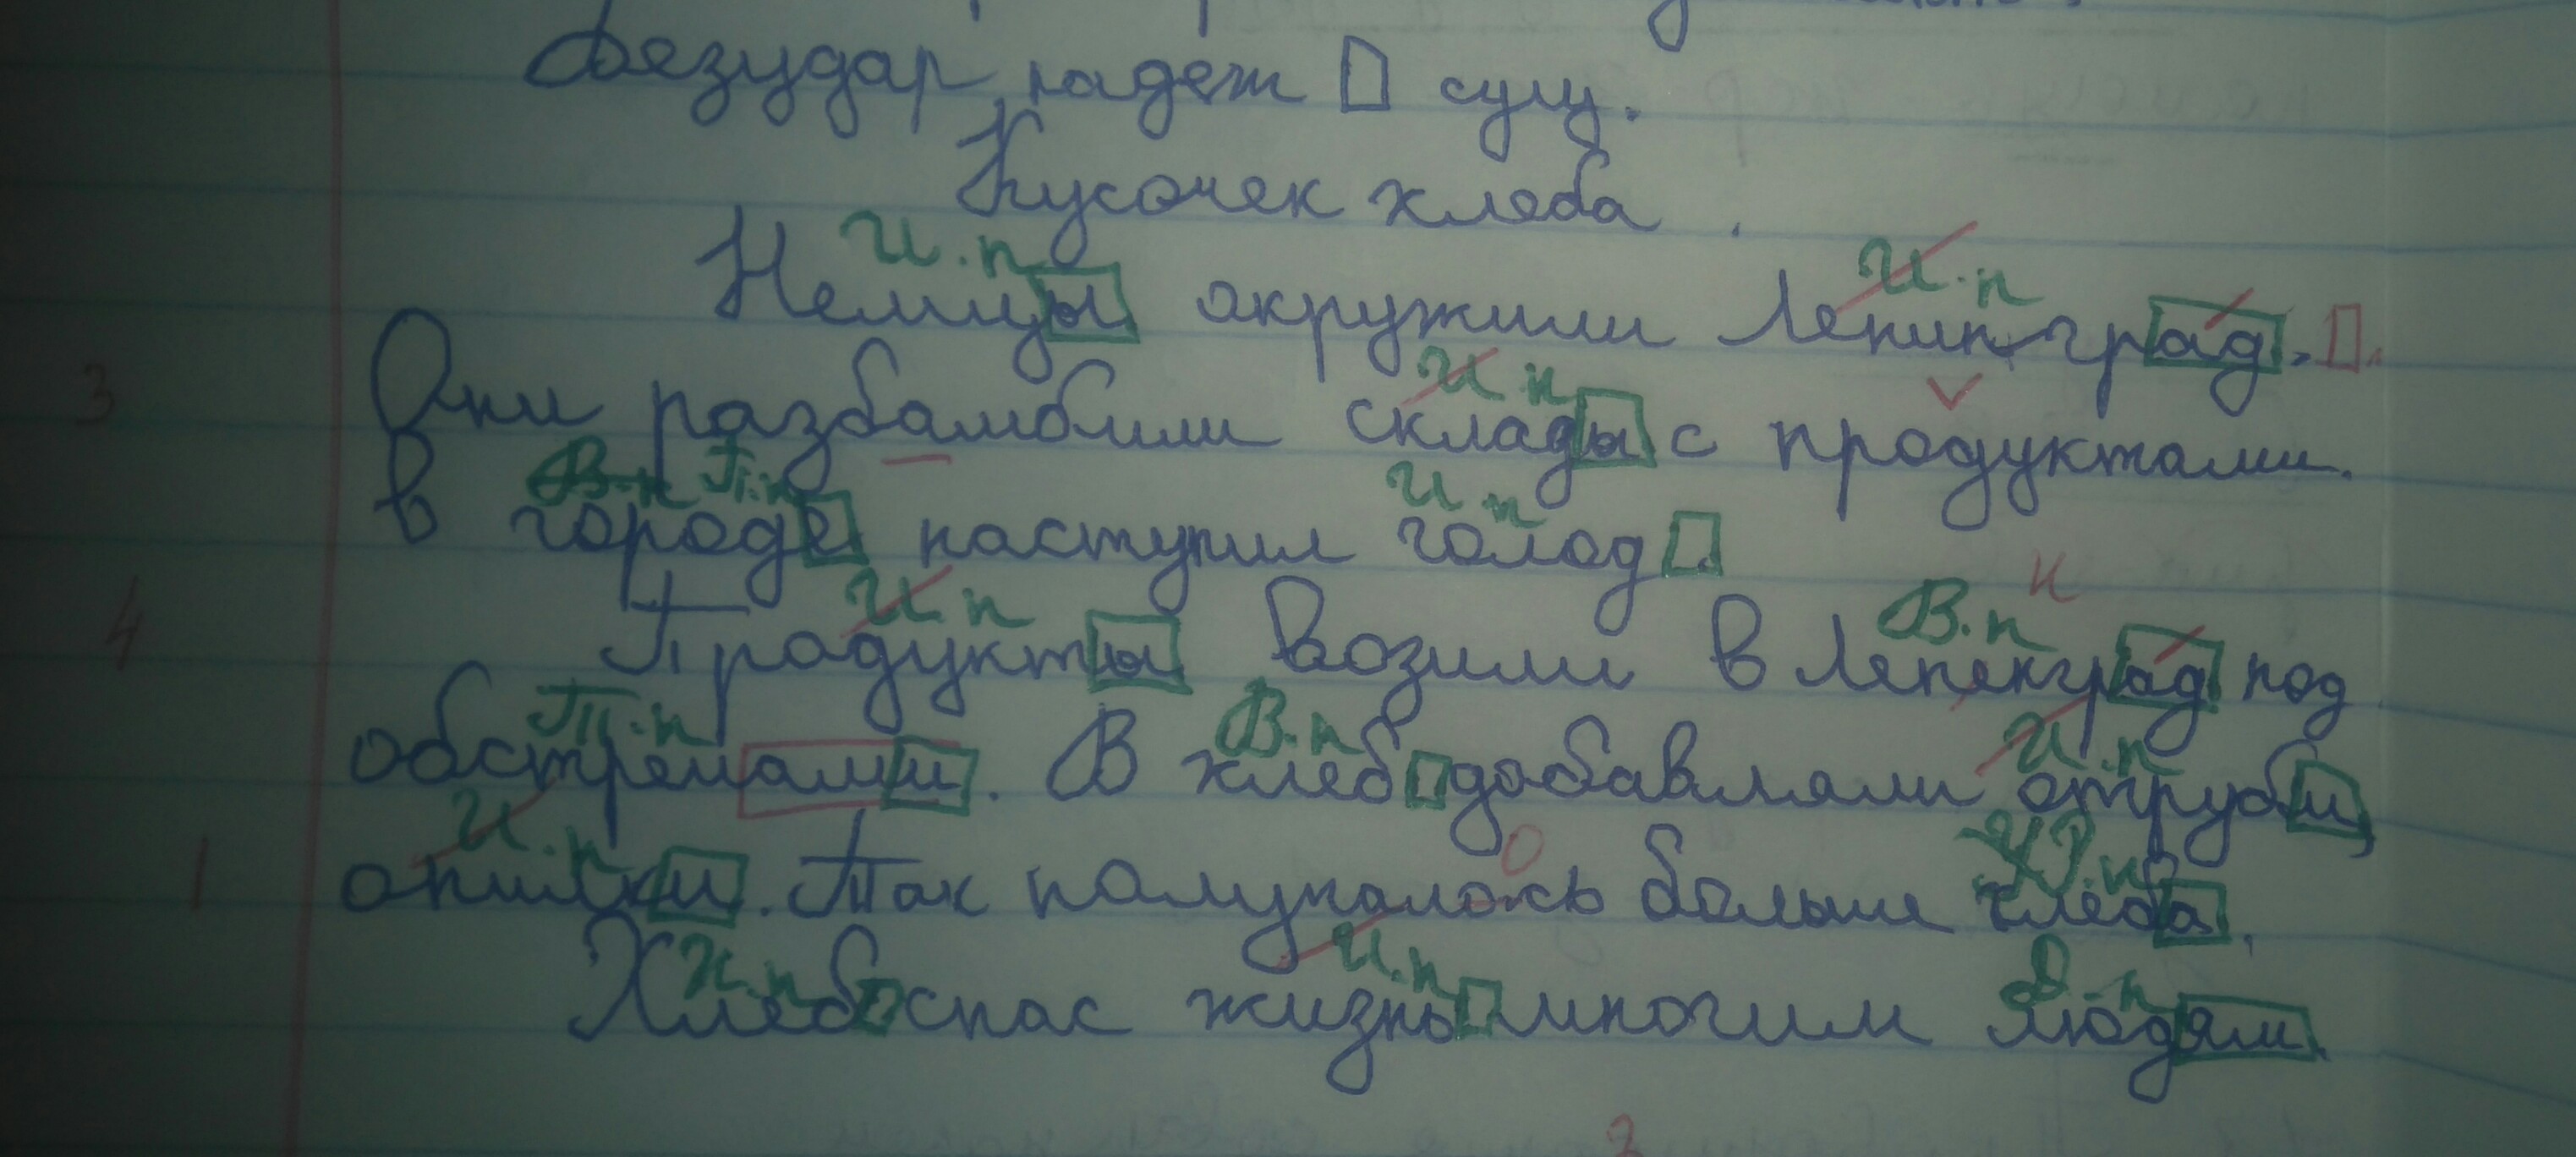 Безудар, падеж сущ.
Кусочек хлеба.
И.п И.п
Немцы окружили Ленинград.
И п
3 Они разбамбили склады с продуктами.
В.п П.п И п
в городе наступил голод.
И п В.п н
4 Продукты возили в Ленекград под
Т.п В.п И.п
обстрелами. В хлеб добавляли отруби,
И.п О Р.п
1 опилки. Так получалась больше хлеба.
И.п И.п Д.п
Хлеб спас жизнь многим людям.